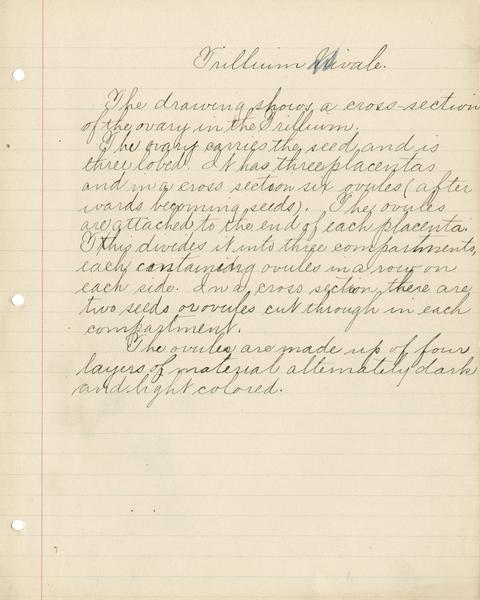 Trillium Nivale.
The drawing shows a cross-section
of the ovary in the Trillium.
The ovary carries the seed and is
three lobed. It has three placentas
and in a cross section six ovules (after
wards becoming seeds). The ovules
are attached to the end of each placenta.
This divides it into three compartments,
each containing ovules in a row on
each side. In a cross section, there are
two seeds or ovules cut through in each
compartment.
The ovules are made up of four
layers of material alternately dark
and light colored.